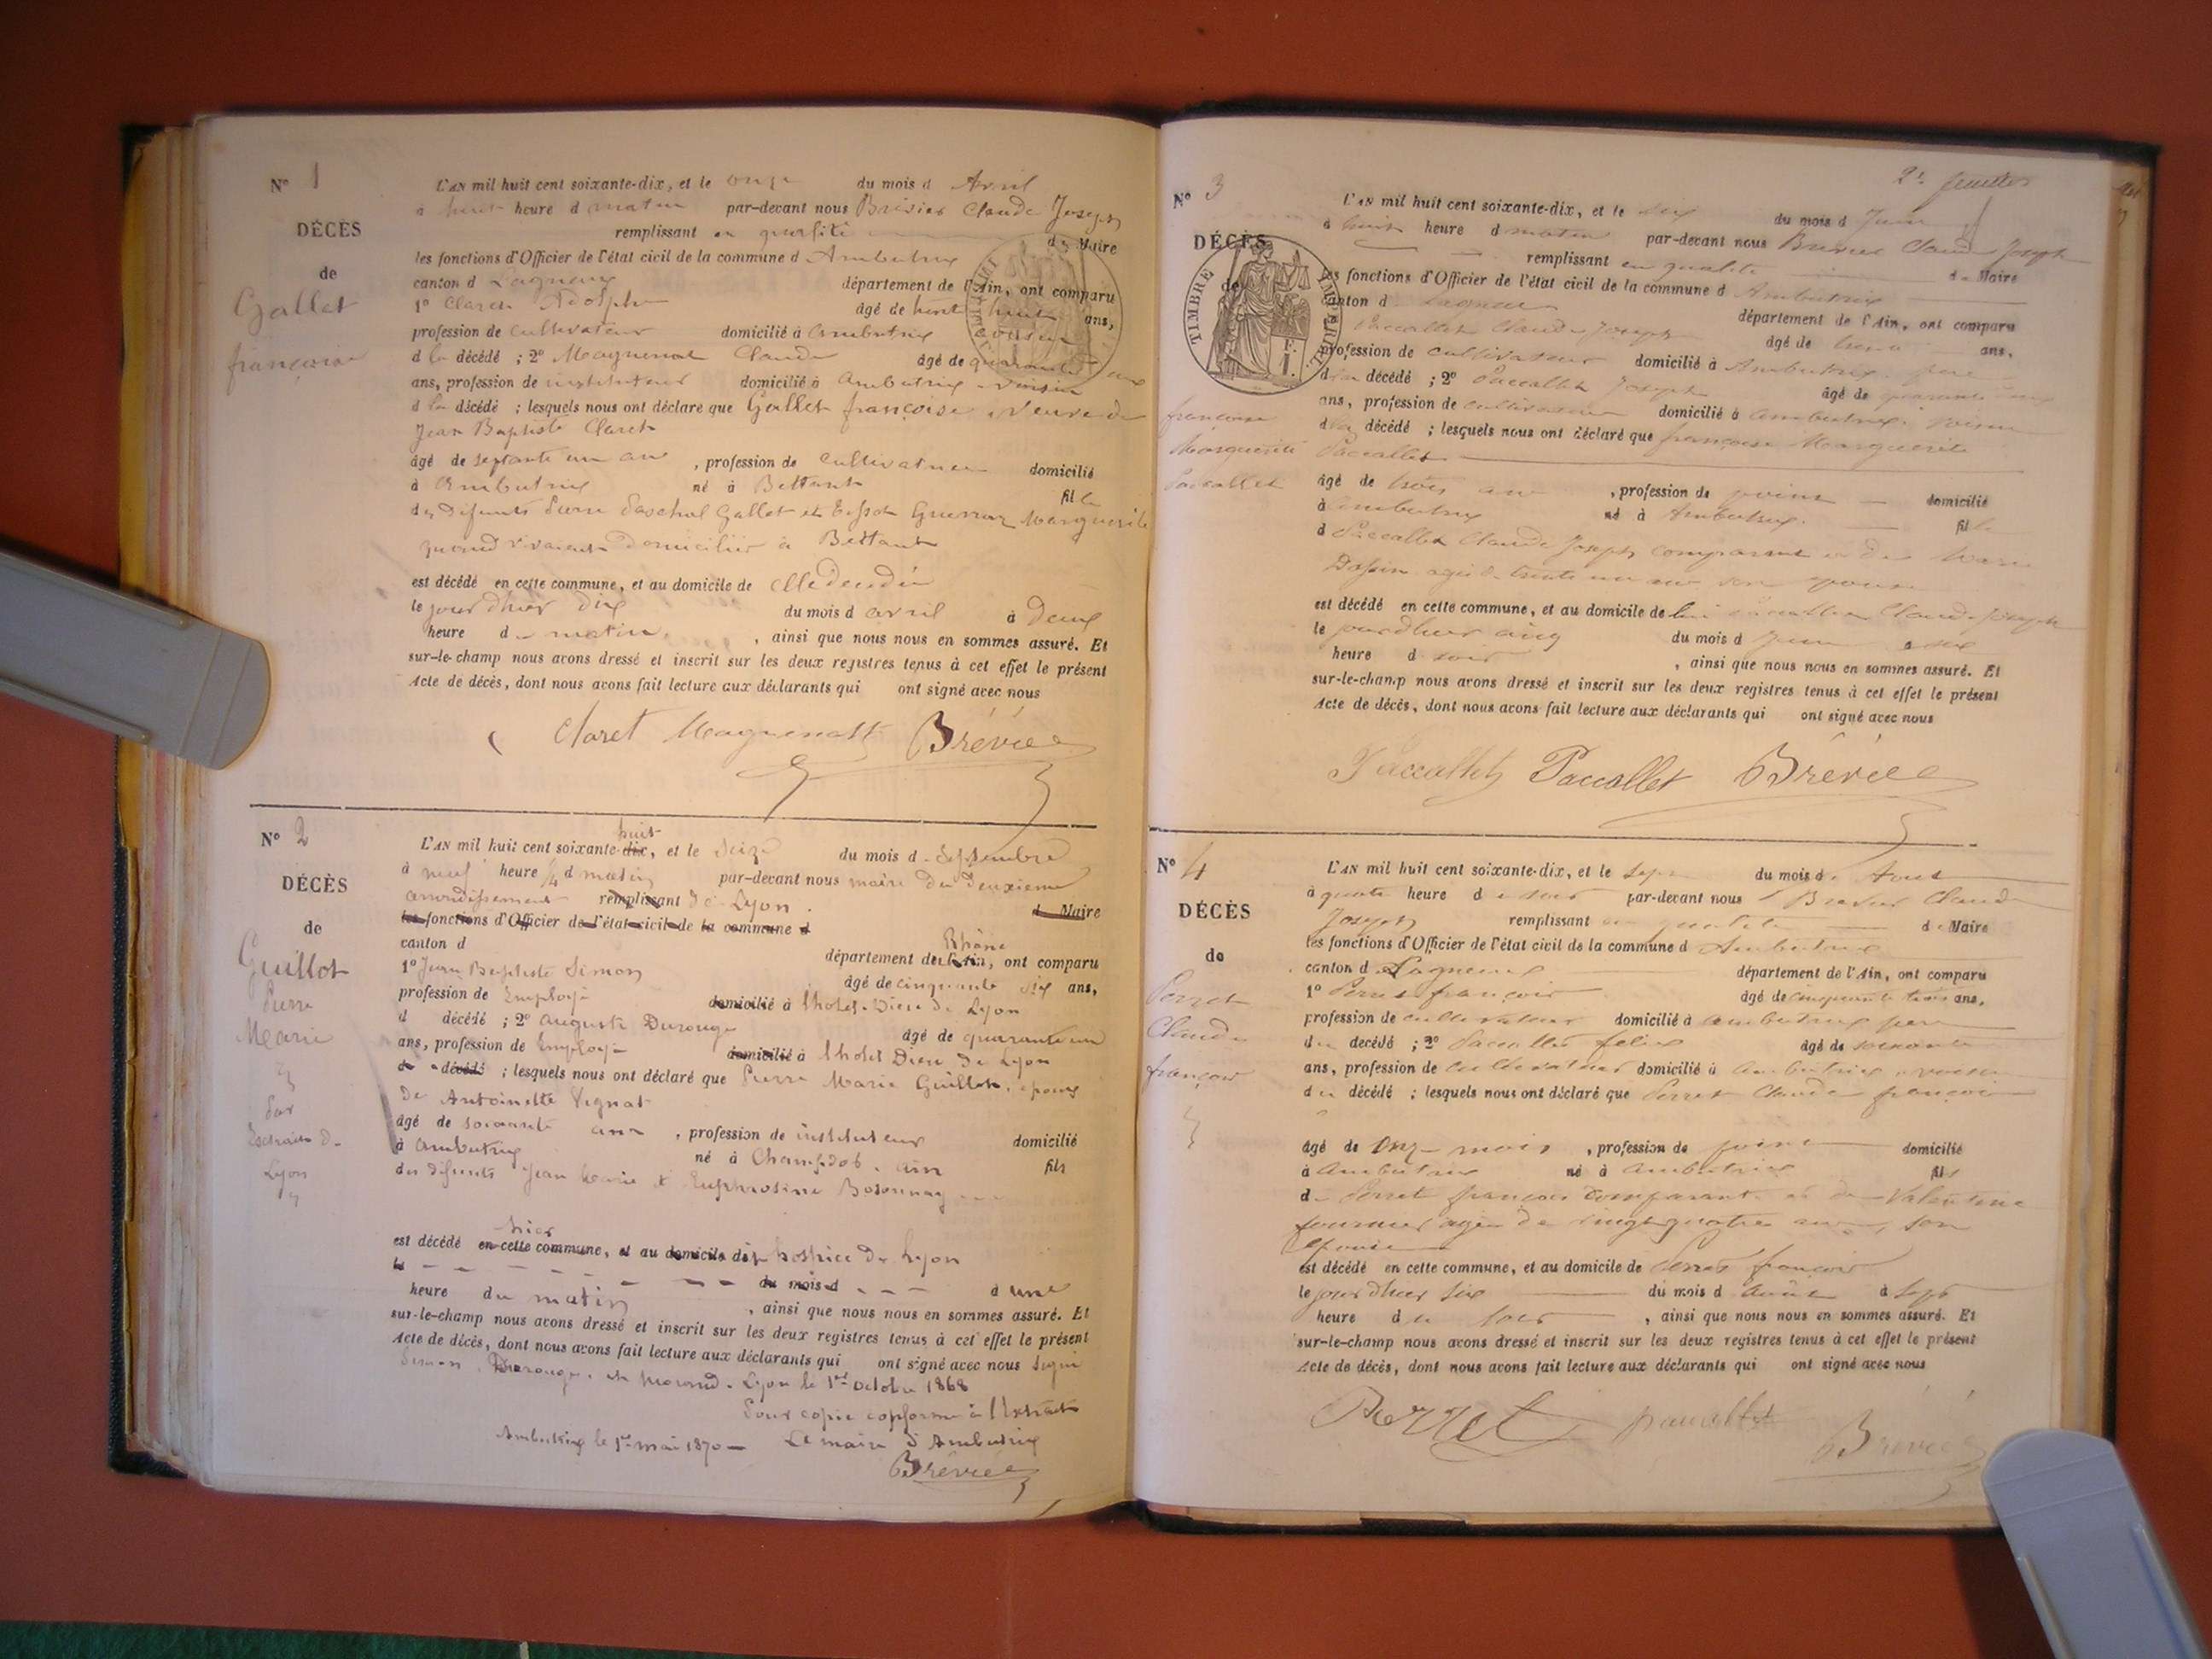 N° 1
DÉCÈS
de
Gallet
françoise
L'AN mil huit cent soixante-dix, et le onze du mois d Avril
à huit heure d matin par-devant nous Brévier Claude Joseph
remplissant en qualité de Maire
les fonctions d'Officier de l'état civil de la commune d Ambutrix
canton d Lagnieu département de l'Ain, ont comparu
1° Claret Adolphe âgé de huit ans,
profession de cultivateur domicilié à Ambutrix cousin
d la décédé ; 2° Magnenat Claude âgé de quarante
ans, profession de instituteur domicilié à Ambutrix voisin
d la décédé ; lesquels nous ont déclaré que Gallet françoise veuve de
Jean Baptiste Claret
âgé de septante un ans , profession de cultivateur domicilié
à Ambutrix né à Bettant fil le
des défunts Pierre Paschal Gallet et Marguerite
quand vivaient domiciliés à Bettant
est décédé en cette commune, et au domicile de elle
le jour d'hier dix du mois d avril à Deux
heure du matin , ainsi que nous nous en sommes assuré. Et
sur-le-champ nous avons dressé et inscrit sur les deux registres tenus à cet effet le présent
Acte de décès, dont nous avons fait lecture aux déclarants qui ont signé avec nous
Claret Magnenat Brévier
N° 2
DÉCÈS
de
Guillot
Pierre
Marie
Par
Extrait de
Lyon
huit
L'AN mil huit cent soixante-dix, et le seize du mois d Septembre
à neuf heure 1/4 d matin par-devant nous maire du deuxième
arrondissement remplissant de Lyon
les fonctions d'Officier de l'état civil de la commune d d Maire
Rhône
canton d département de l'Ain, ont comparu
1° Jean Baptiste Simon âgé de cinquante six ans,
profession de Employé domicilié à l'hotel-Dieu de Lyon
d décédé ; 2° Auguste Durouge âgé de quarante un
ans, profession de Employé domicilié à l'hotel Dieu de Lyon
d décédé ; lesquels nous ont déclaré que Pierre Marie Guillot, époux
de Antoinette Vignat
âgé de soixante ans , profession de instituteur domicilié
à Ambutrix né à Champdor, ain fils
des défunts Jean Marie & Euphrosine Bosonnay
hier
est décédé en cette commune, et au domicile de hospice de Lyon
le du mois d à une
heure du matin , ainsi que nous nous en sommes assuré. Et
sur-le-champ nous avons dressé et inscrit sur les deux registres tenus à cet effet le présent
Acte de décès, dont nous avons fait lecture aux déclarants qui ont signé avec nous Signé
Simon, Durouge, et Morand. Lyon le 1er octobre 1868
Pour copie conforme à l'Extrait
Ambutrix le 1er mai 1870 Le maire d'Ambutrix
Brévier
2e feuillet
N° 3
DÉCÈS
de
TIMBRE IMPERIAL
françoise
Marguerite
Paccallet
L'AN mil huit cent soixante-dix, et le six du mois d Juin
à huit heure d matin par-devant nous Brévier Claude Joseph
remplissant en qualité de Maire
les fonctions d'Officier de l'état civil de la commune d Ambutrix
canton d Lagnieu département de l'Ain, ont comparu
Paccallet Claude Joseph âgé de ans,
profession de cultivateur domicilié à Ambutrix père
d la décédé ; 2° Paccallet Joseph âgé de quarante
ans, profession de cultivateur domicilié à Ambutrix voisin
d la décédé ; lesquels nous ont déclaré que françoise Marguerite
Paccallet
âgé de trois ans , profession de point domicilié
à Ambutrix né à Ambutrix fil le
d Paccallet Claude Joseph comparant et de Marie
agée de trente un ans son épouse
est décédé en cette commune, et au domicile de lui Paccallet Claude Joseph
le jour d'hier cinq du mois d juin à six
heure d soir , ainsi que nous nous en sommes assuré. Et
sur-le-champ nous avons dressé et inscrit sur les deux registres tenus à cet effet le présent
Acte de décès, dont nous avons fait lecture aux déclarants qui ont signé avec nous
Paccallet Paccallet Brévier
N° 4
DÉCÈS
de
Perret
Claude
françois
L'AN mil huit cent soixante-dix, et le sept du mois d Aout
à quatre heure d soir par-devant nous Brévier Claude
Joseph remplissant en qualité de Maire
les fonctions d'Officier de l'état civil de la commune d Ambutrix
canton d Lagnieu département de l'Ain, ont comparu
1° Perret françois âgé de cinquante trois ans,
profession de cultivateur domicilié à Ambutrix père
du décédé ; 2° Paccallet felix âgé de soixante
ans, profession de cultivateur domicilié à Ambutrix voisin
du décédé ; lesquels nous ont déclaré que Perret Claude françois
âgé de onze mois , profession de point domicilié
à Ambutrix né à Ambutrix fils
de Perret françois comparant et de Valentine
fournier agée de vingt quatre ans, son
épouse
est décédé en cette commune, et au domicile de Perret françois
le jour d'hier six du mois d Août à sept
heure du soir , ainsi que nous nous en sommes assuré. Et
sur-le-champ nous avons dressé et inscrit sur les deux registres tenus à cet effet le présent
Acte de décès, dont nous avons fait lecture aux déclarants qui ont signé avec nous
Perret paccallet Brévier